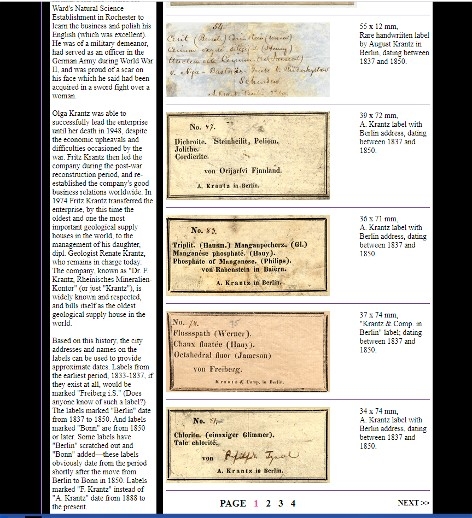 Ward's Natural Science
Establishment in Rochester to
learn the business and polish his
English (which was excellent).
He was of a military demeanor,
had served as an officer in the
German Army during World War
II, and was proud of a scar on
his face which he said had been
acquired in a sword fight over a
woman.
Olga Krantz was able to
successfully lead the enterprise
until her death in 1948, despite
the economic upheavals and
difficulties occasioned by the
war. Fritz Krantz then led the
company during the post-war
reconstruction period, and re-
established the company's good
business relations worldwide. In
1974 Fritz Krantz transferred the
enterprise, by this time the
oldest and one of the most
important geological supply
houses in the world, to the
management of his daughter,
dipl. Geologist Renate Krantz,
who remains in charge today.
The company, known as "Dr. F.
Krantz, Rheinisches Mineralien-
Kontor" (or just "Krantz"), is
widely known and respected,
and bills itself as the oldest
geological supply house in the
world.
Based on this history, the city
addresses and names on the
labels can be used to provide
approximate dates. Labels from
the earliest period, 1833-1837, if
they exist at all, would be
marked "Freiberg i.S." (Does
anyone know of such a label?)
The labels marked "Berlin" date
from 1837 to 1850. And labels
marked "Bonn" are from 1850
or later. Some labels have
"Berlin" scratched out and
"Bonn" added—these labels
obviously date from the period
shortly after the move from
Berlin to Bonn in 1850. Labels
marked "F. Krantz" instead of
"A. Krantz" date from 1888 to
the present.
55 x 12 mm,
Rare handwritten label
by August Krantz in
Berlin, dating between
1837 and 1850.
No. 47.
Dichroite. Steinheilit, Peliom,
Jolithe.
Cordierite.
von Orijärfvi Finnland.
A. Krantz in Berlin.
39 x 72 mm,
A. Krantz label with
Berlin address, dating
between 1837 and
1850.
No. 83.
Triplit. (Hausm.) Manganpecherz. (Gl.)
Manganèse phosphaté. (Hauy).
Phosphate of Manganese. (Philips).
von Rabenstein in Baiern.
A. Krantz in Berlin.
36 x 71 mm,
A. Krantz label with
Berlin address, dating
between 1837 and
1850.
No.
Flussspath (Werner).
Chaux fluatée (Hauy).
Octahedral fluor (Jameson)
von Freiberg.
Krantz & Comp. in Berlin.
37 x 74 mm,
"Krantz & Comp. in
Berlin" label; dating
between 1837 and
1850.
No.
Chlorite. (einaxiger Glimmer).
Talc chlorite.
von
A. Krantz in Berlin.
34 x 74 mm,
A. Krantz label with
Berlin address, dating
between 1837 and
1850.
PAGE 1 2 3 4 NEXT >>